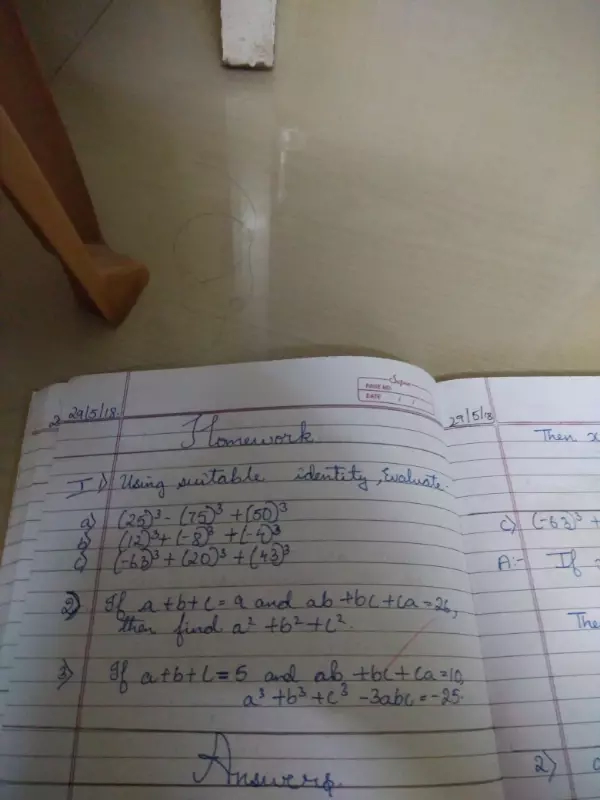 PAGE NO.
DATE / /
2 29/5/18
Homework
I) Using suitable identity, Evaluate.
a) (25)³ - (75)³ + (50)³
b) (12)³ + (-8)³ + (-4)³
c) (-63)³ + (20)³ + (43)³
2) If a+b+c = 9 and ab + bc + ca = 26,
then find a² + b² + c².
3) If a+b+c = 5 and ab + bc + ca = 10,
a³ + b³ + c³ - 3abc = -25.
Answers
29/5/18
Then
c) (-63)³ +
A:- If
The
2)